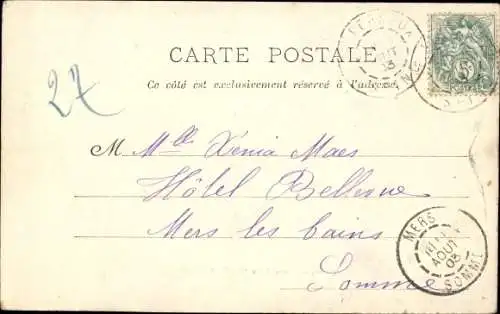 CARTE POSTALE
Ce côté est exclusivement réservé à l'adresse
27
M Mlle Xénia Maes
Hôtel Bellevue
Mers les bains
Somme
MERS
AOUT
03
SOMME